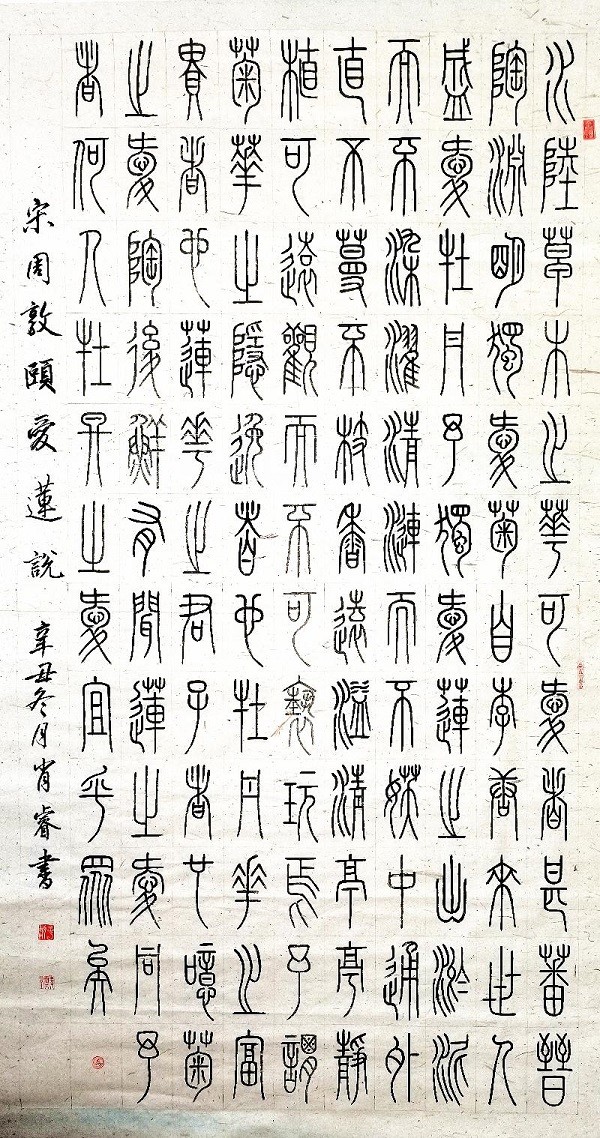 水陸草木之華可愛者甚蕃晉
陶淵明獨愛菊自李唐來世人
盛愛牡丹予獨愛蓮之出淤泥
而不染濯清漣而不妖中通外
直不蔓不枝香遠溢清亭亭靜
植可遠觀而不可褻玩焉予謂
菊華之隱逸者也牡丹華之富
貴者也蓮華之君子者也噫菊
之愛陶後鮮有聞蓮之愛同予
者何人牡丹之愛宜乎眾矣
宋周敦頤愛蓮說 辛丑冬月肖睿書